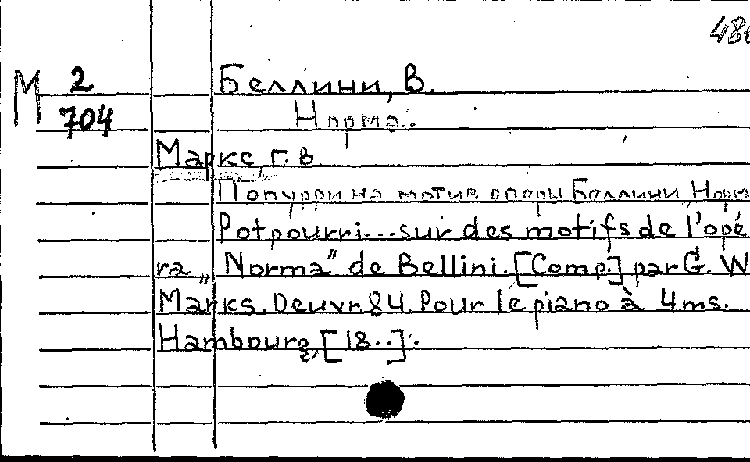 486
М 2 Беллини, В.
704 Норма.
Маркс, Г. В
Попурри на мотив оперы Беллини „Норм
Potpourri...sur des motifs de l'opé
ra „Norma" de Bellini. [Comp.] par G. W
Marks. Oeuvr. 84. Pour le piano à 4 ms.
Hambourg, [18..].